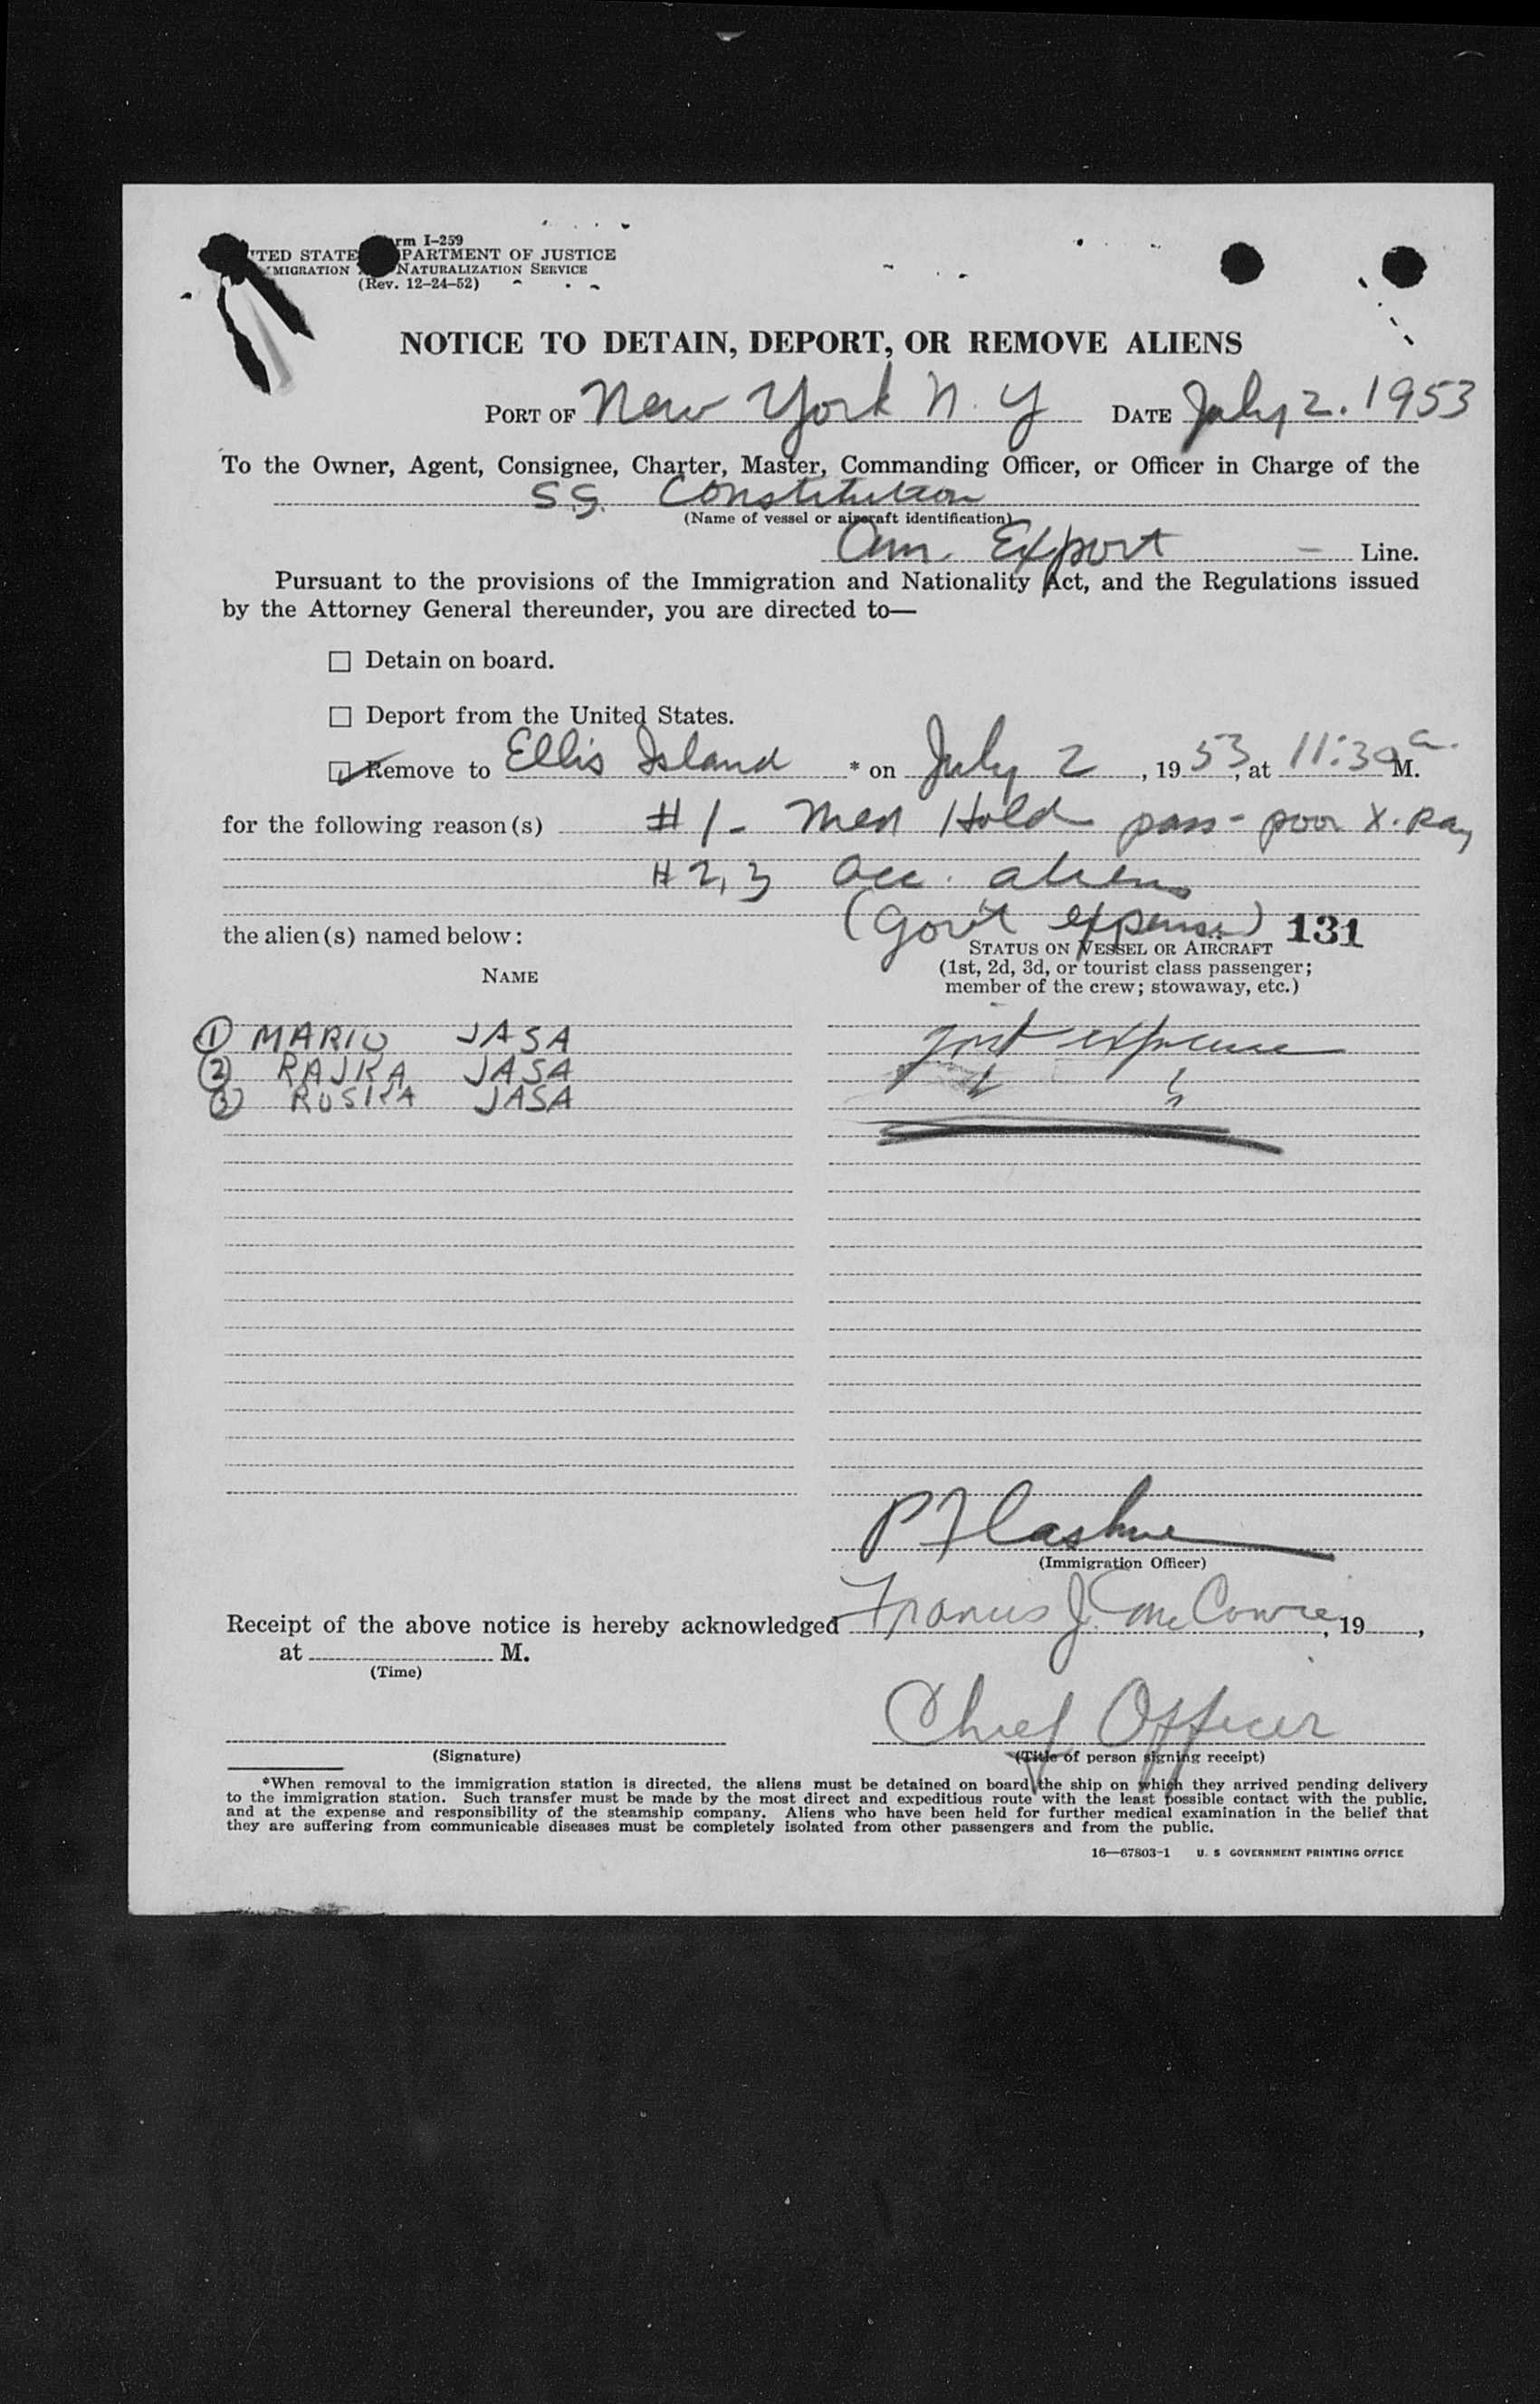 rm I-259
ITED STATE PARTMENT OF JUSTICE
MIGRATION NATURALIZATION SERVICE
(Rev. 12-24-52)
NOTICE TO DETAIN, DEPORT, OR REMOVE ALIENS
PORT OF New York N.Y DATE July 2. 1953
To the Owner, Agent, Consignee, Charter, Master, Commanding Officer, or Officer in Charge of the
S.S. Constitution
(Name of vessel or aircraft identification)
Am. Export – Line.
Pursuant to the provisions of the Immigration and Nationality Act, and the Regulations issued
by the Attorney General thereunder, you are directed to—
☐ Detain on board.
☐ Deport from the United States.
☑ Remove to Ellis Island * on July 2, 1953, at 11:30 a. M.
for the following reason(s) #1- Med Hold pass- poor X-Ray
#2,3 acc. aliens
(Gov't expense) 131
the alien(s) named below:
STATUS ON VESSEL OR AIRCRAFT
(1st, 2d, 3d, or tourist class passenger;
member of the crew; stowaway, etc.)
NAME
① MARIO JASA govt expense
② RAJKA JASA
③ RUSIKA JASA
(Immigration Officer)
Receipt of the above notice is hereby acknowledged Francis J. , 19 ,
at M.
(Time)
Chief Officer
(Signature) (Title of person signing receipt)
*When removal to the immigration station is directed, the aliens must be detained on board the ship on which they arrived pending delivery
to the immigration station. Such transfer must be made by the most direct and expeditious route with the least possible contact with the public,
and at the expense and responsibility of the steamship company. Aliens who have been held for further medical examination in the belief that
they are suffering from communicable diseases must be completely isolated from other passengers and from the public.
16—67803-1 U. S GOVERNMENT PRINTING OFFICE